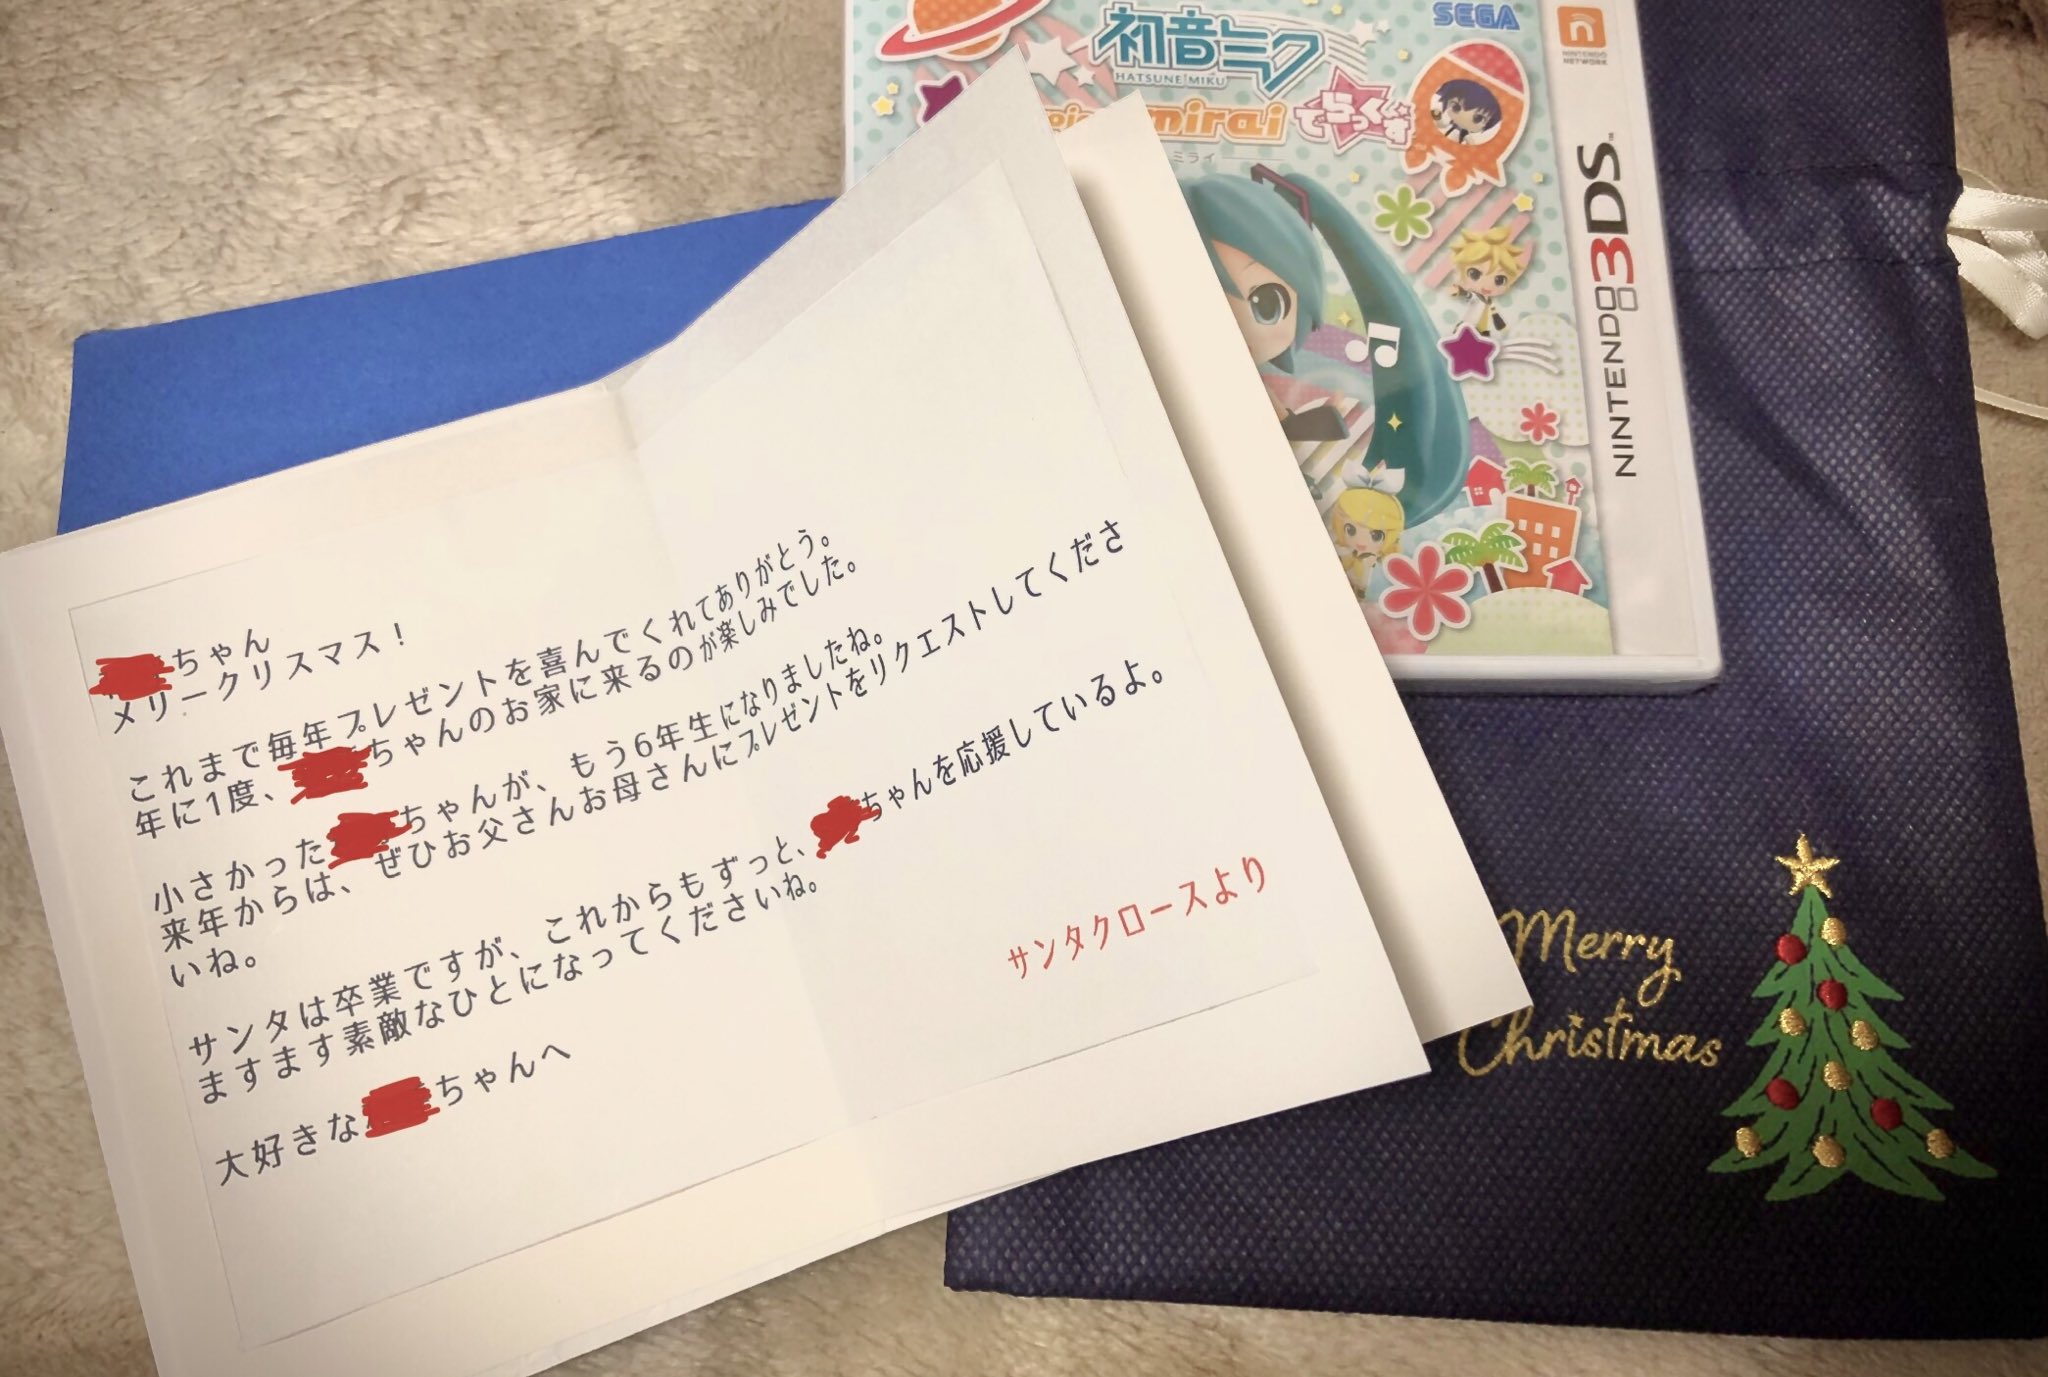 ちゃん
メリークリスマス！
これまで毎年プレゼントを喜んでくれてありがとう。
年に1度、ちゃんのお家に来るのが楽しみでした。
小さかったちゃんが、もう6年生になりましたね。
来年からは、ぜひお父さんお母さんにプレゼントをリクエストしてくださ
いね。
サンタは卒業ですが、これからもずっと、ちゃんを応援しているよ。
ますます素敵なひとになってくださいね。
大好きなちゃんへ
サンタクロースより
SEGA
初音ミク
HATSUNE MIKU
mirai でらっくす
ミライ
NINTENDO
NETWORK
NINTENDO 3DS
Merry
Christmas